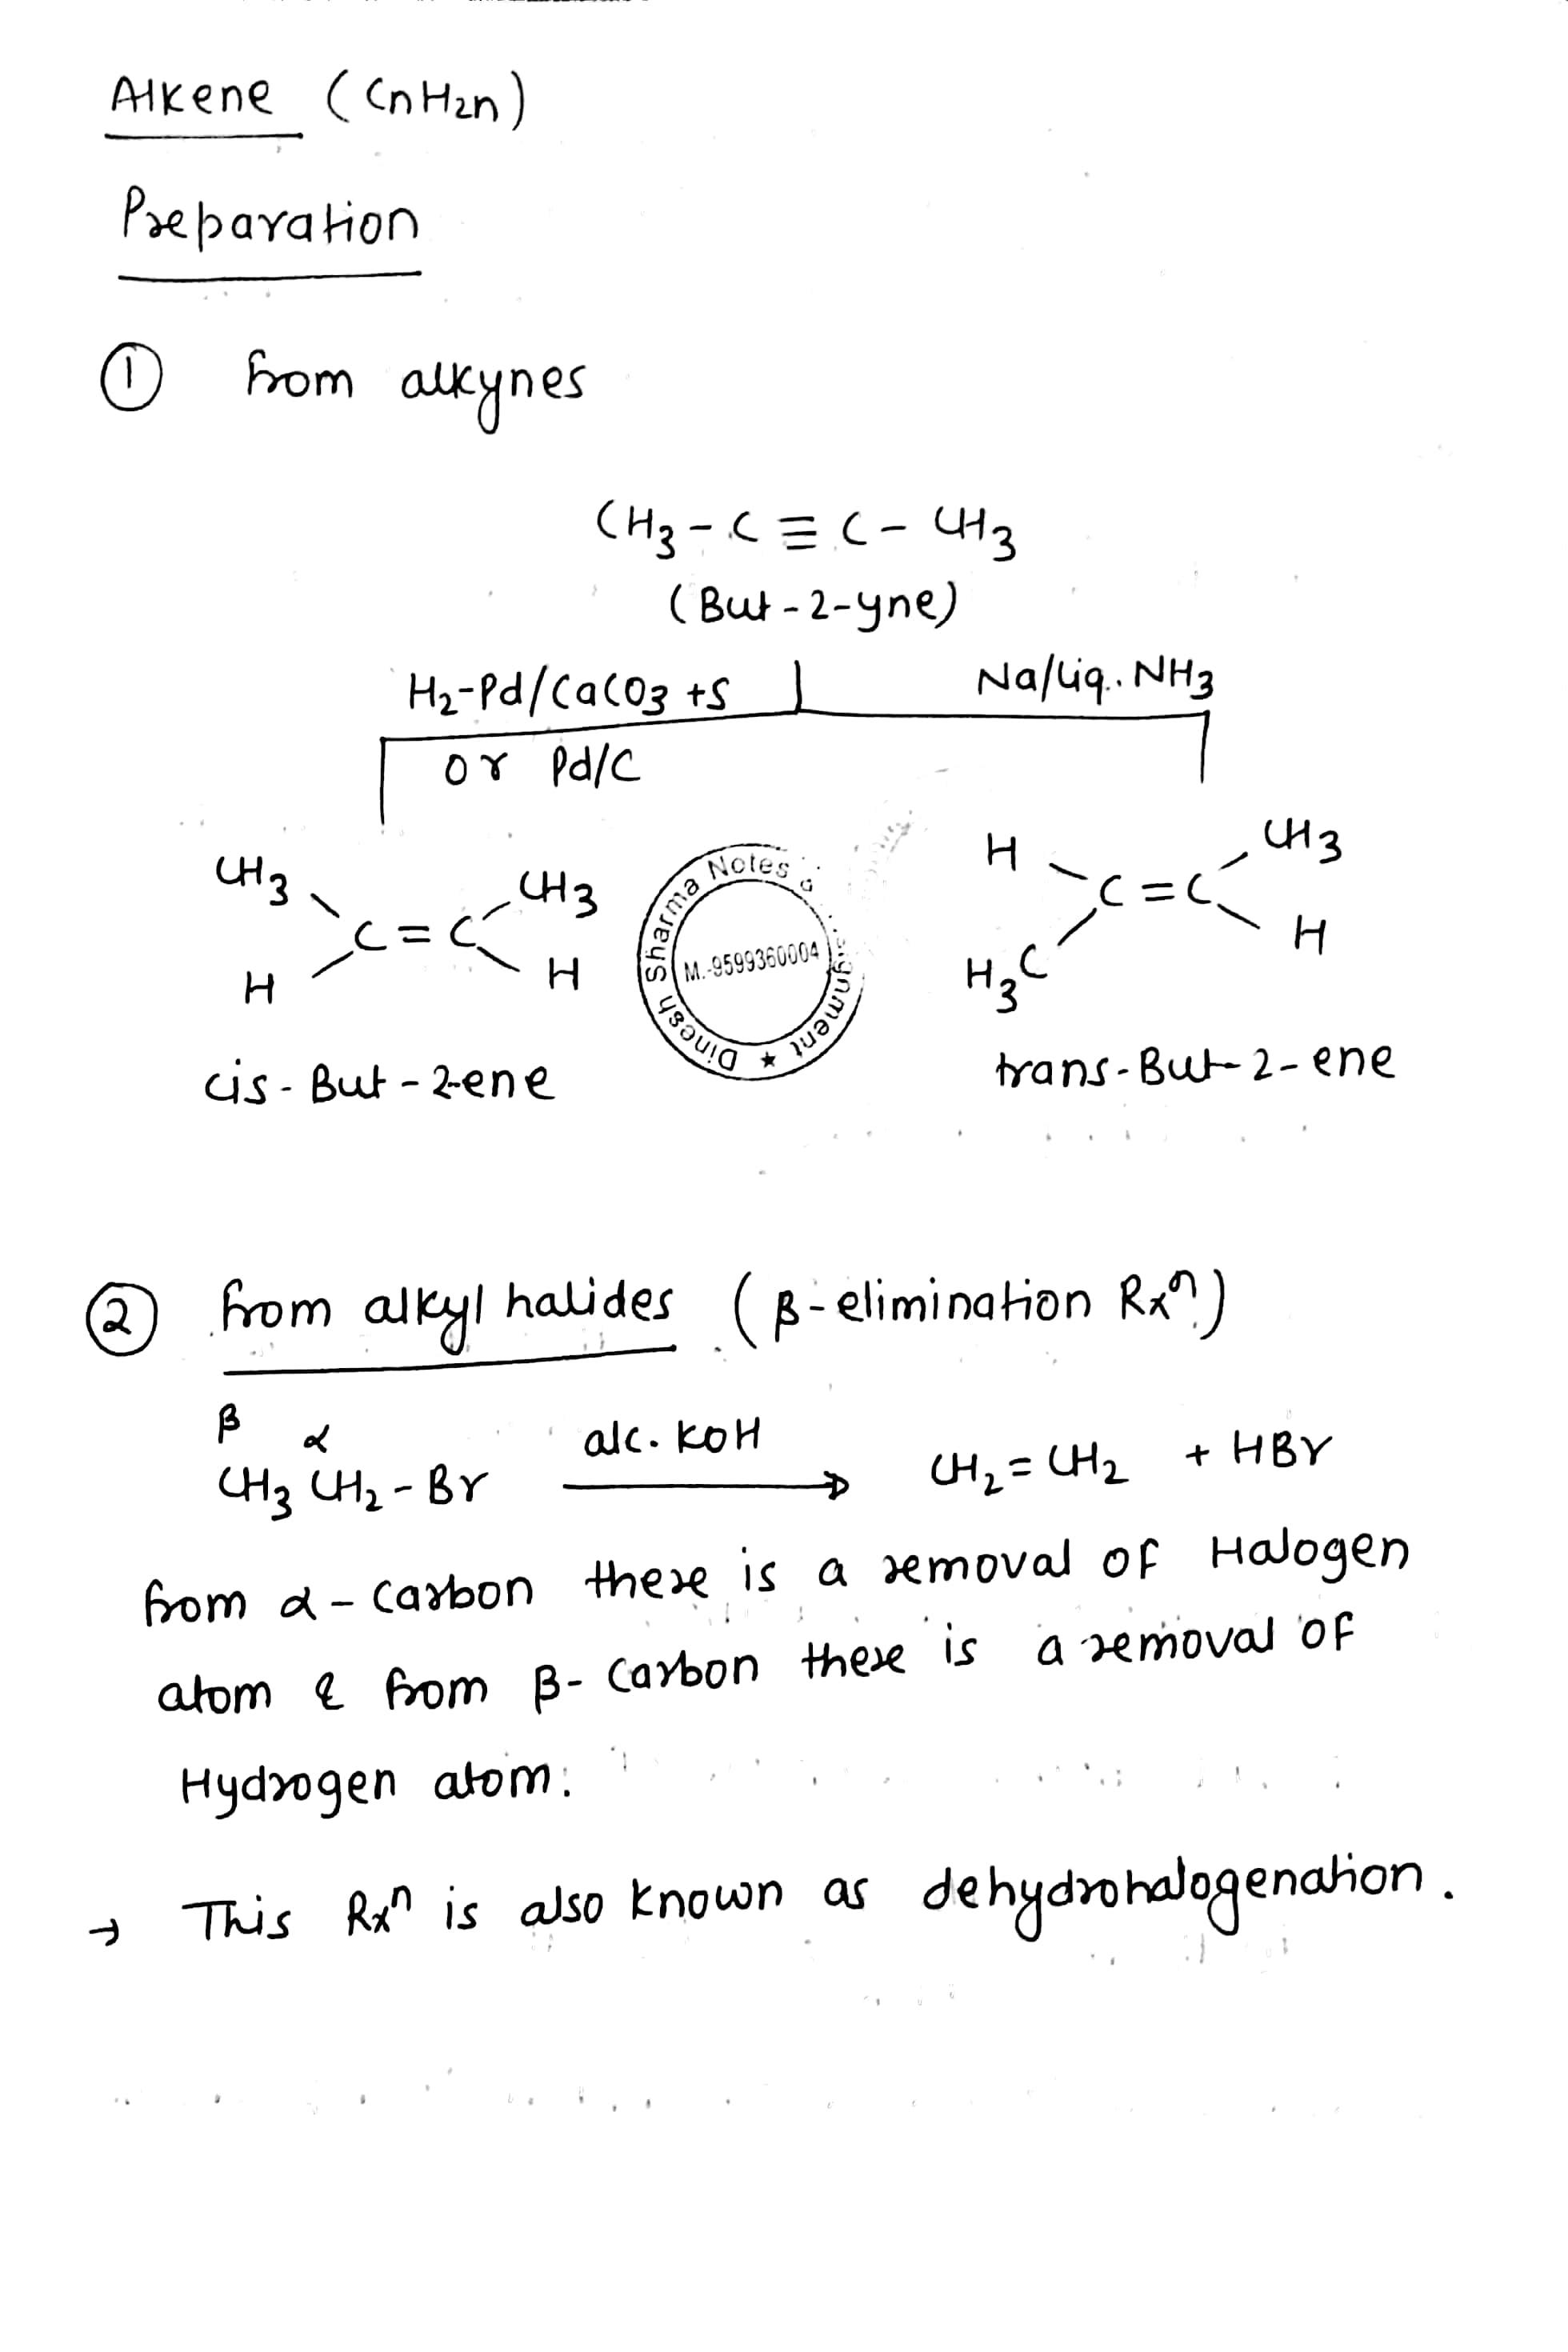 Alkene (CnH2n)
Preparation
① from alkynes
CH3 - C ≡ C - CH3
(But-2-yne)
H2-Pd/CaCO3 +S
Na/liq. NH3
or Pd/C
CH3
CH3
C = C
H
H
cis-But-2-ene
H
CH3
C = C
H3C
H
trans-But-2-ene
Dinesh Sharma Notes
M.-9599360004
② from alkyl halides (β-elimination Rxn)
β α
CH3 CH2-Br alc. KOH → CH2=CH2 + HBr
from α-carbon there is a removal of Halogen
atom & from β-Carbon there is a removal of
Hydrogen atom.
→ This Rxn is also known as dehydrohalogenation.